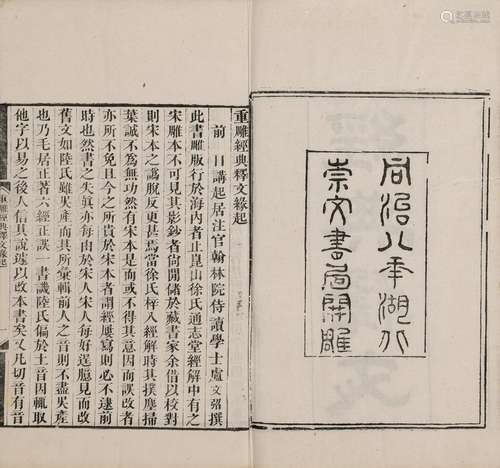 同治八年湖北
崇文書局開雕
重雕經典釋文緣起
前 日講起居注官翰林院侍讀學士盧文弨撰
此書雕版行於海內者止崑山徐氏通志堂經解中有之
宋雕本不可見其影鈔者尚閒儲於藏書家余借以校對
則宋本之譌脫反更甚焉當徐氏梓入經解時其撲塵掃
葉誠不為無功然有宋本是而或不得其意因而誤改者
亦所不免且今之所貴於宋本者謂經屢寫則必不逮前
時也然書之失眞亦每由於宋人宋人每好逞臆見而改
舊文如陸氏雖吳產而其所彙輯前人之音則不盡吳產
也乃毛居正著六經正誤一書譏陸氏偏於土音因輒取
他字以易之後人信其說遽以改本書矣又凡切音有音
重雕經典釋文緣起